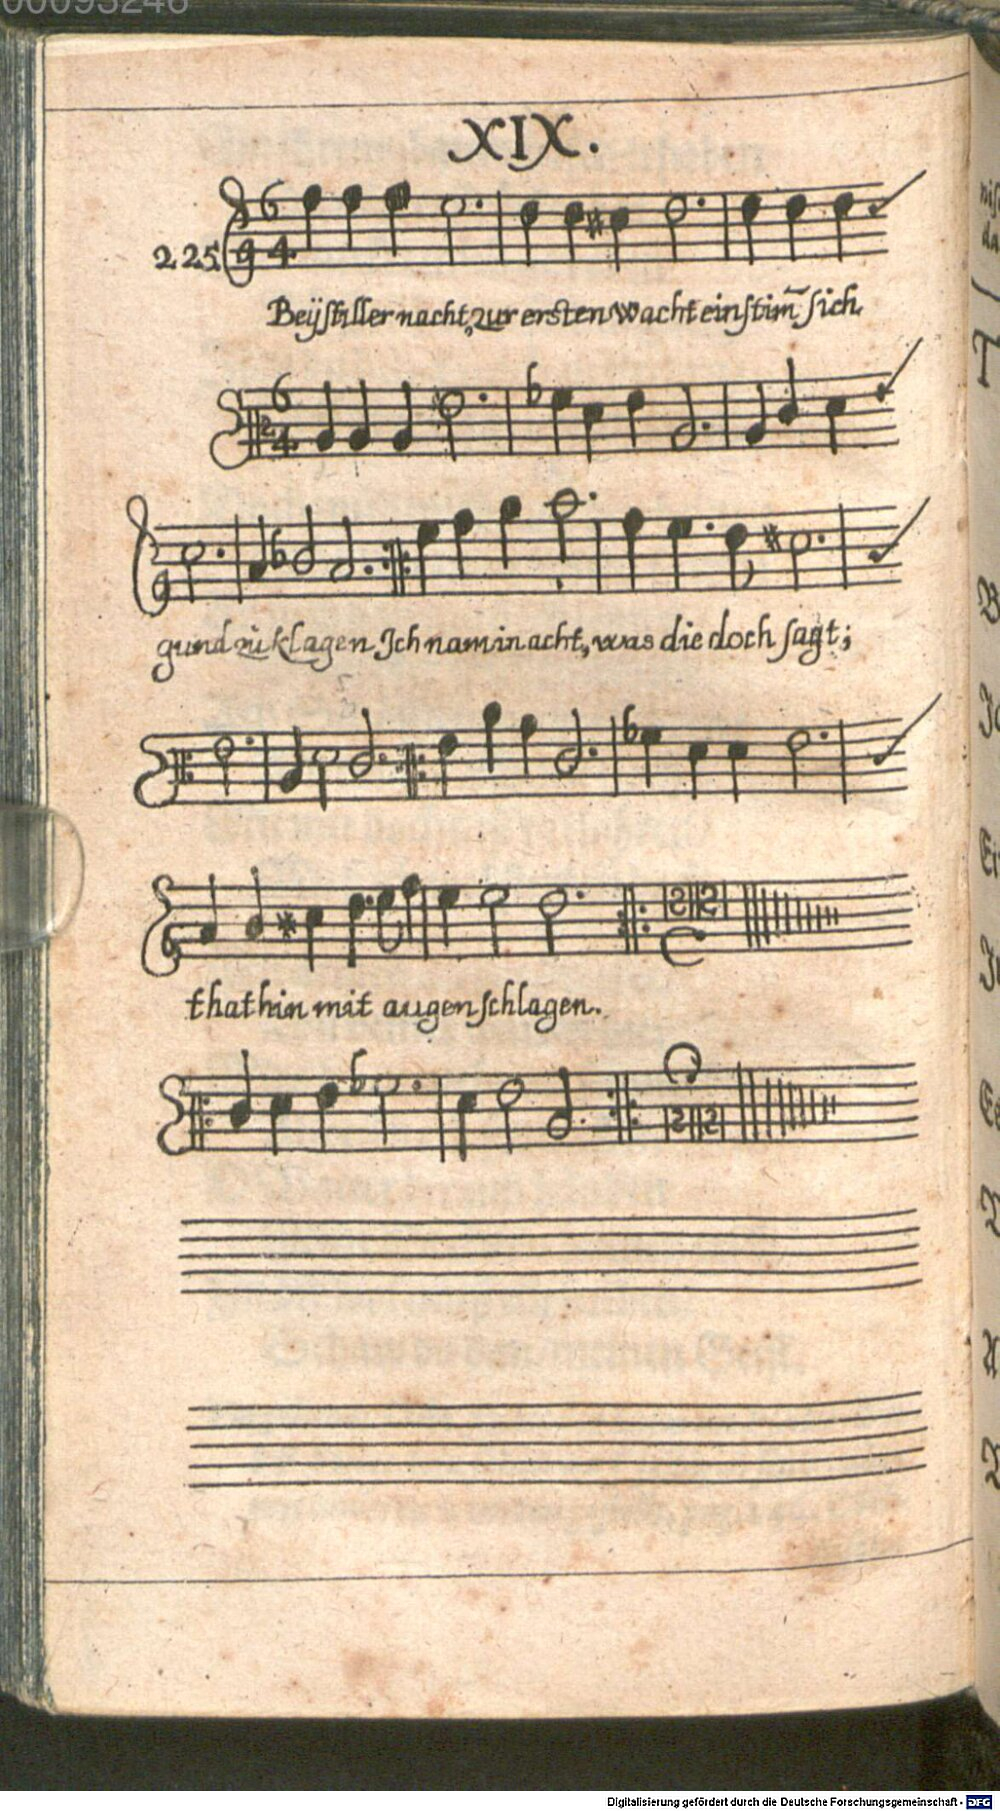 00093246
XIX.
225
6
4
Beÿ stiller nacht, zur ersten wacht ein stim̄ sich
6
4
gund zů klagen Ich nam in acht, was die doch sagt;
that hin mit augen schlagen.
Digitalisierung gefördert durch die Deutsche Forschungsgemeinschaft - DFG